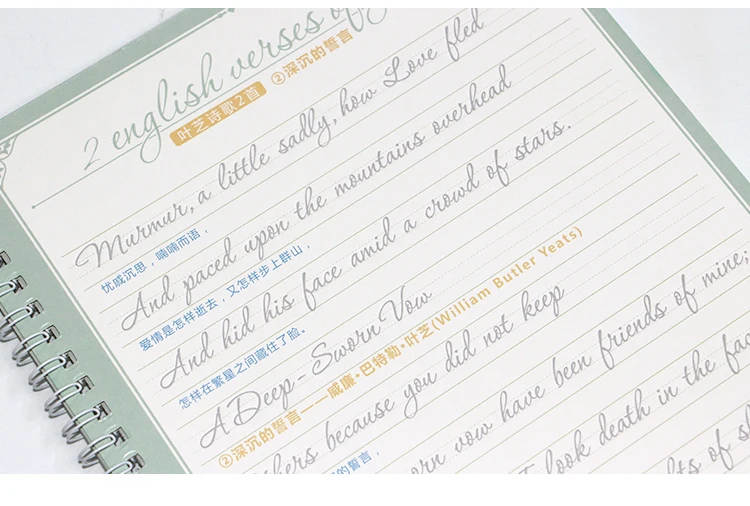 2 english verses of
叶芝诗歌2首 ②深沉的誓言
Murmur, a little sadly, how Love fled
忧戚沉思，喃喃而语，
And paced upon the mountains overhead
爱情是怎样逝去，又怎样步上群山，
And hid his face amid a crowd of stars.
怎样在繁星之间藏住了脸。
A Deep-Sworn Vow
②深沉的誓言——威廉·巴特勒·叶芝(William Butler Yeats)
hers because you did not keep
的誓言，
orn vow have been friends of mine;
look death in the fac
hts of s